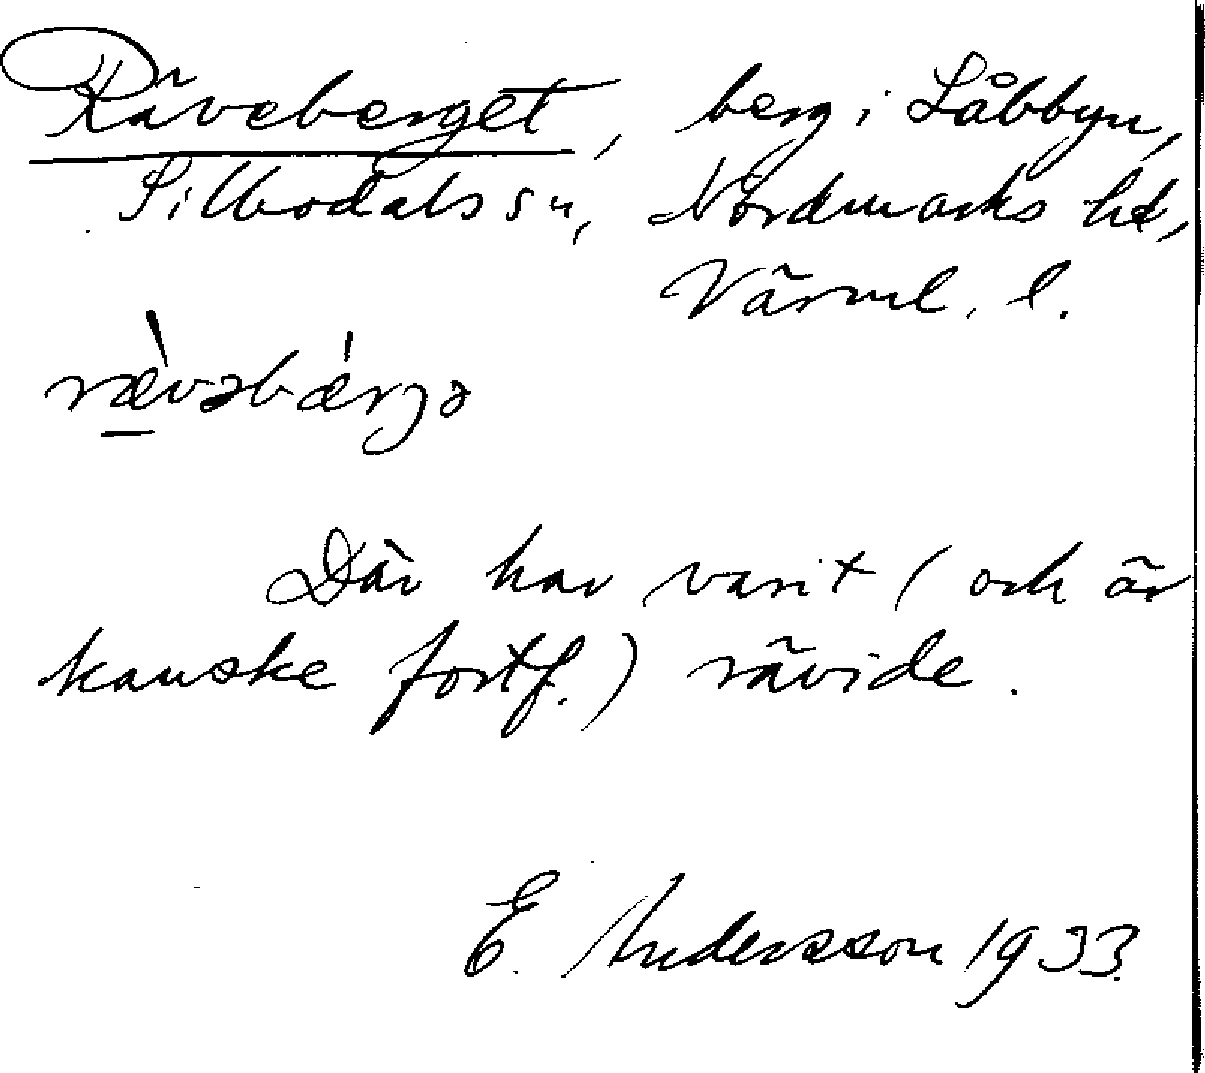 Räveberget, berg i Låbbyn,
Silbodals sn, Nordmarks hd,
Värml. l.
ræ̀vəbá́rjə
Där har varit (och är
kanske fortf.) rävide.
E. Andersson 1933.